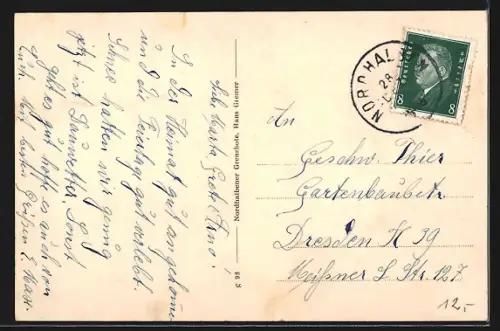 Liebe Marta, Grete & Arno!
In der Heimat gut angekommen
und die Feiertage gut verlebt.
Schnee hatten wir genug
jetzt ist Tauwetter. Sonst
geht es gut hoffe es auch von
Euch. Mit besten Grüßen E. Max.
Nordhalbener Grenzhofe, Hans Giemer
G 98
NORDHALBEN
28
DEUTSCHES
REICH
8
8
An
Geschw. Thier
Gartenbaubetr.
Dresden A 39
Meißner L Str. 127
12,-